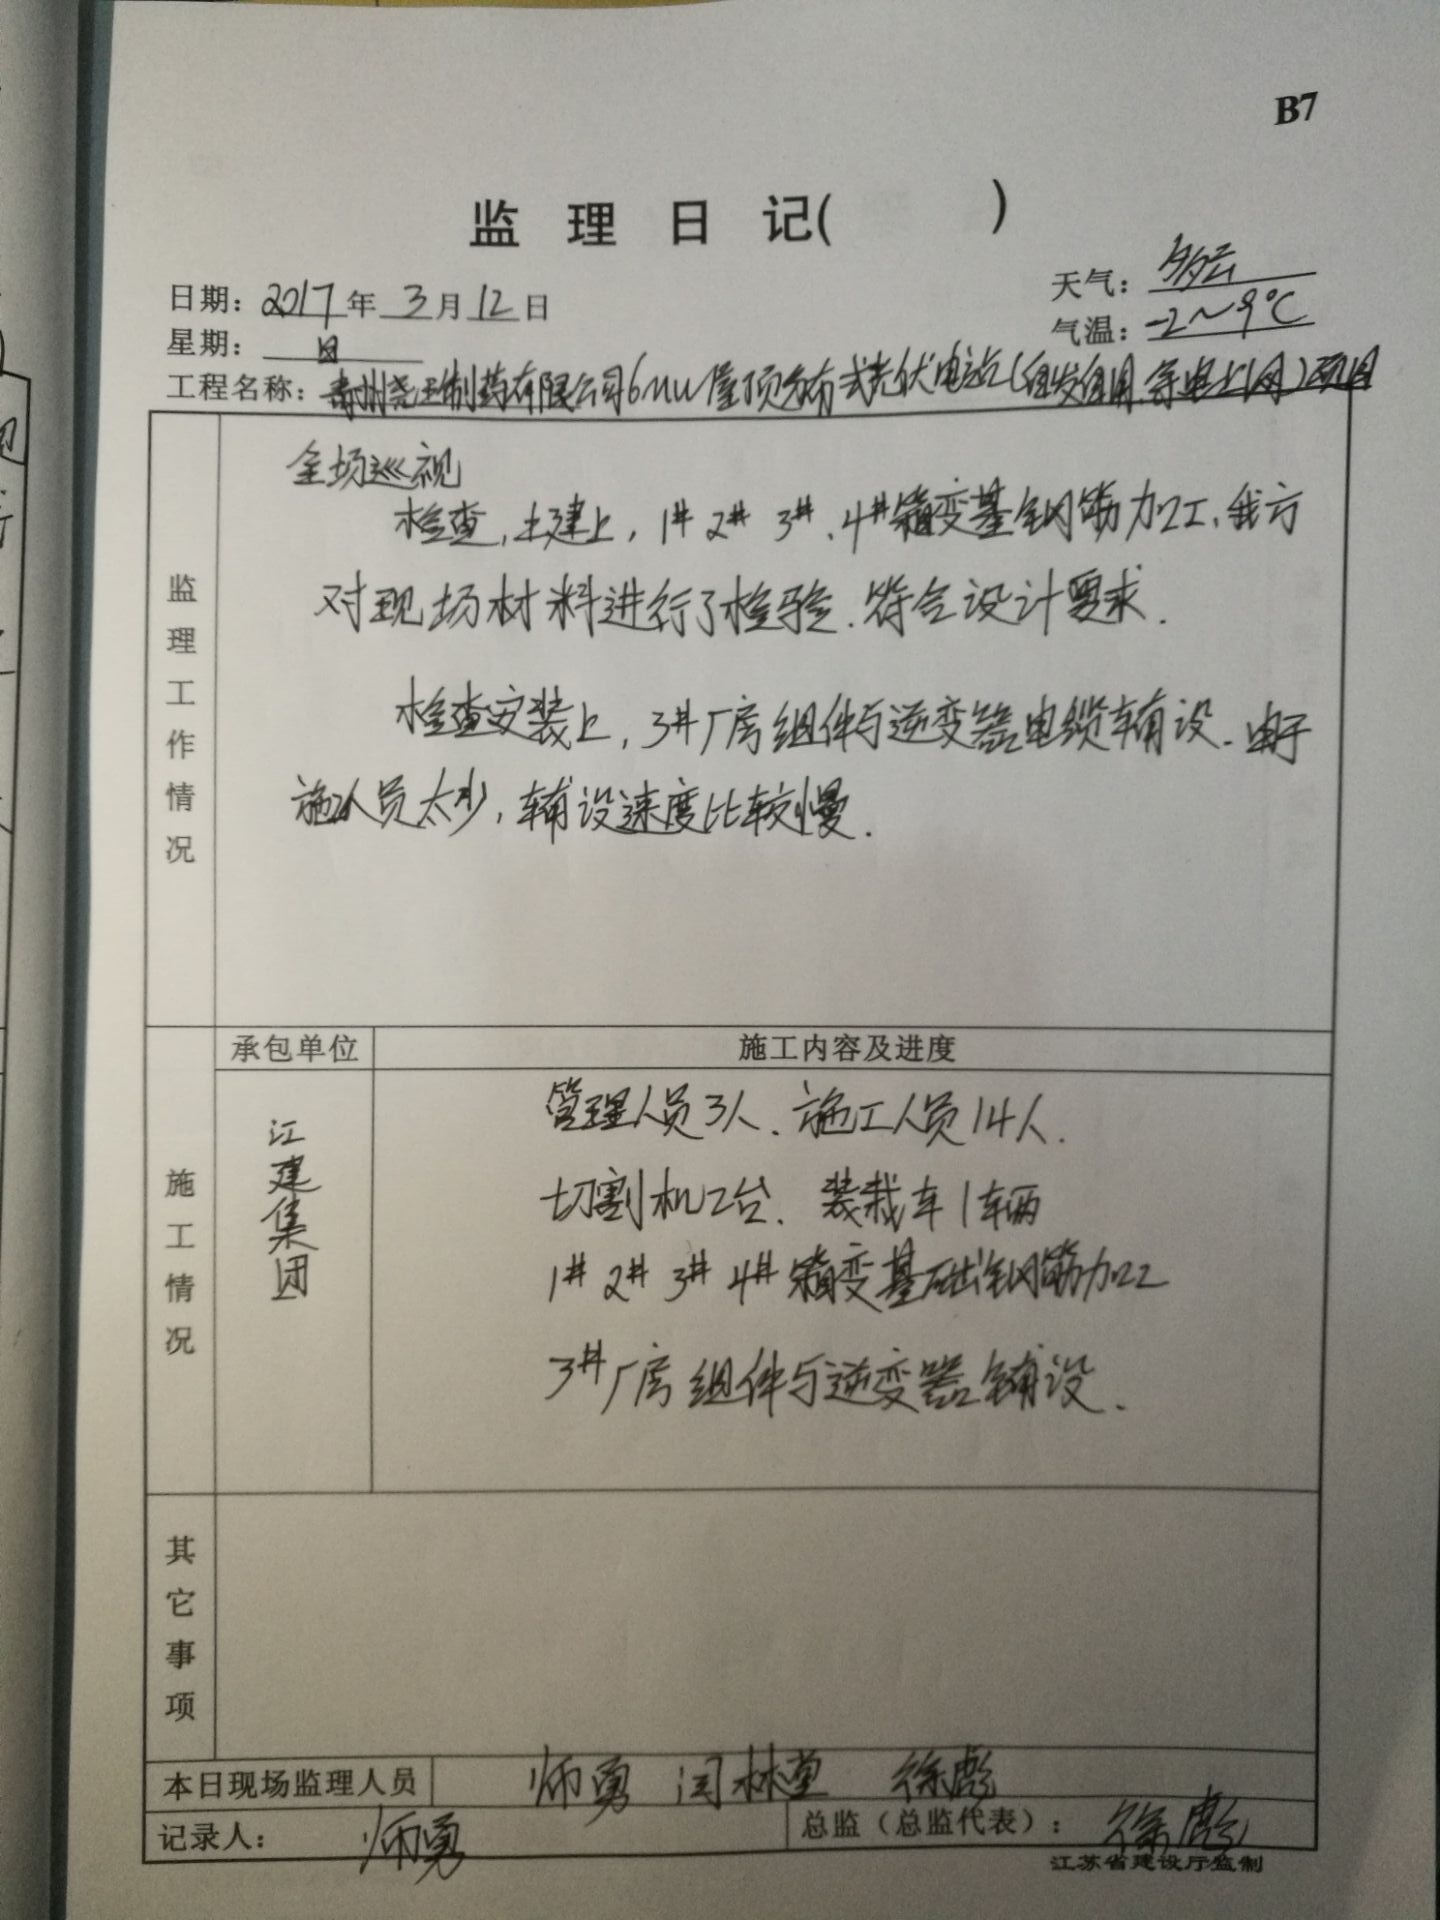 B7
监理日记( )
日期：2017年3月12日
天气：多云
星期：日
气温：-2～9℃
工程名称：青州尧王制药有限公司6MW屋顶分布式光伏电站(自发自用,余电上网)项目
监理工作情况
全场巡视
检查,土建上,1# 2# 3#、4#箱变基钢筋加工,我方
对现场材料进行了检验.符合设计要求.
检查安装上,3#厂房组件与逆变器电缆辅设.由于
施工人员太少,辅设速度比较慢.
施工情况
承包单位
施工内容及进度
江建集团
管理人员3人、施工人员14人.
切割机2台、装载车1车辆
1# 2# 3# 4#箱变基础钢筋加工
3#厂房组件与逆变器铺设.
其它事项
本日现场监理人员 师勇 闫林堂 徐彪
记录人：师勇
总监（总监代表）：徐彪
江苏省建设厅监制